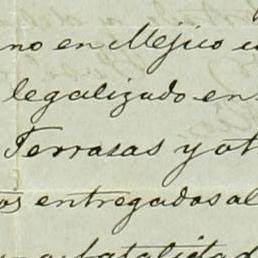 no en Mejico
legalizado en
Terrasas y
entregados al